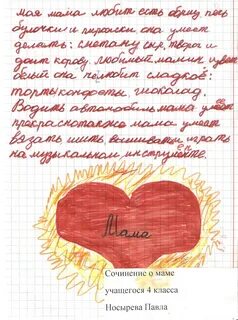 моя мама любит есть борщ печь
булочки и пирожки она умеет
делать: сметану сыр, творог и
доит корову. любимый мамин цвет
белый она не любит сладкое:
торты конфеты шоколад.
Водить автомобиль мама умеет
прекрасно также мама умеет
вязать шить вышивать и играть
на музыкальном инструменте.
Мама
Сочинение о маме
учащегося 4 класса
Носырева Павла